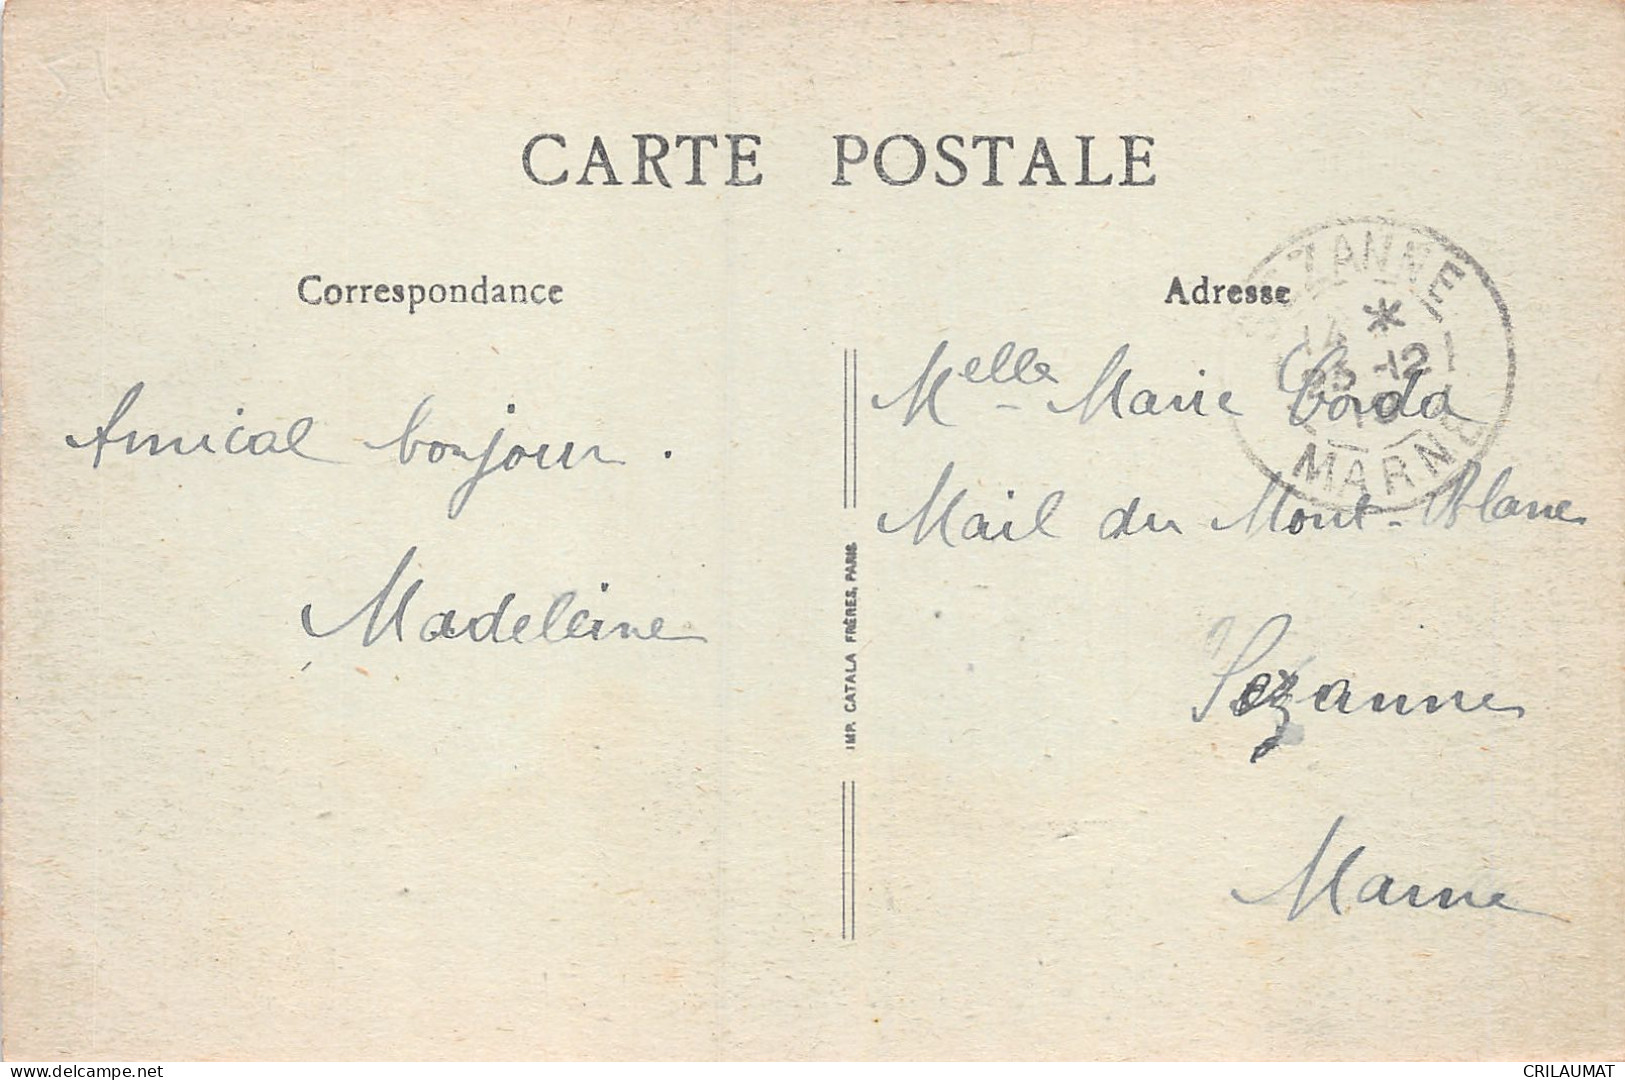 CARTE POSTALE
Correspondance
Amical bonjour.
Madeleine
IMP. CATALA FRÈRES, PARIS
Adresse
SEZANNE
14 *
23 -12
MARNE
Melle Marie Corda
Mail du Mont-Blanc
Sezanne
Marne
delcampe.net
CRILAUMAT